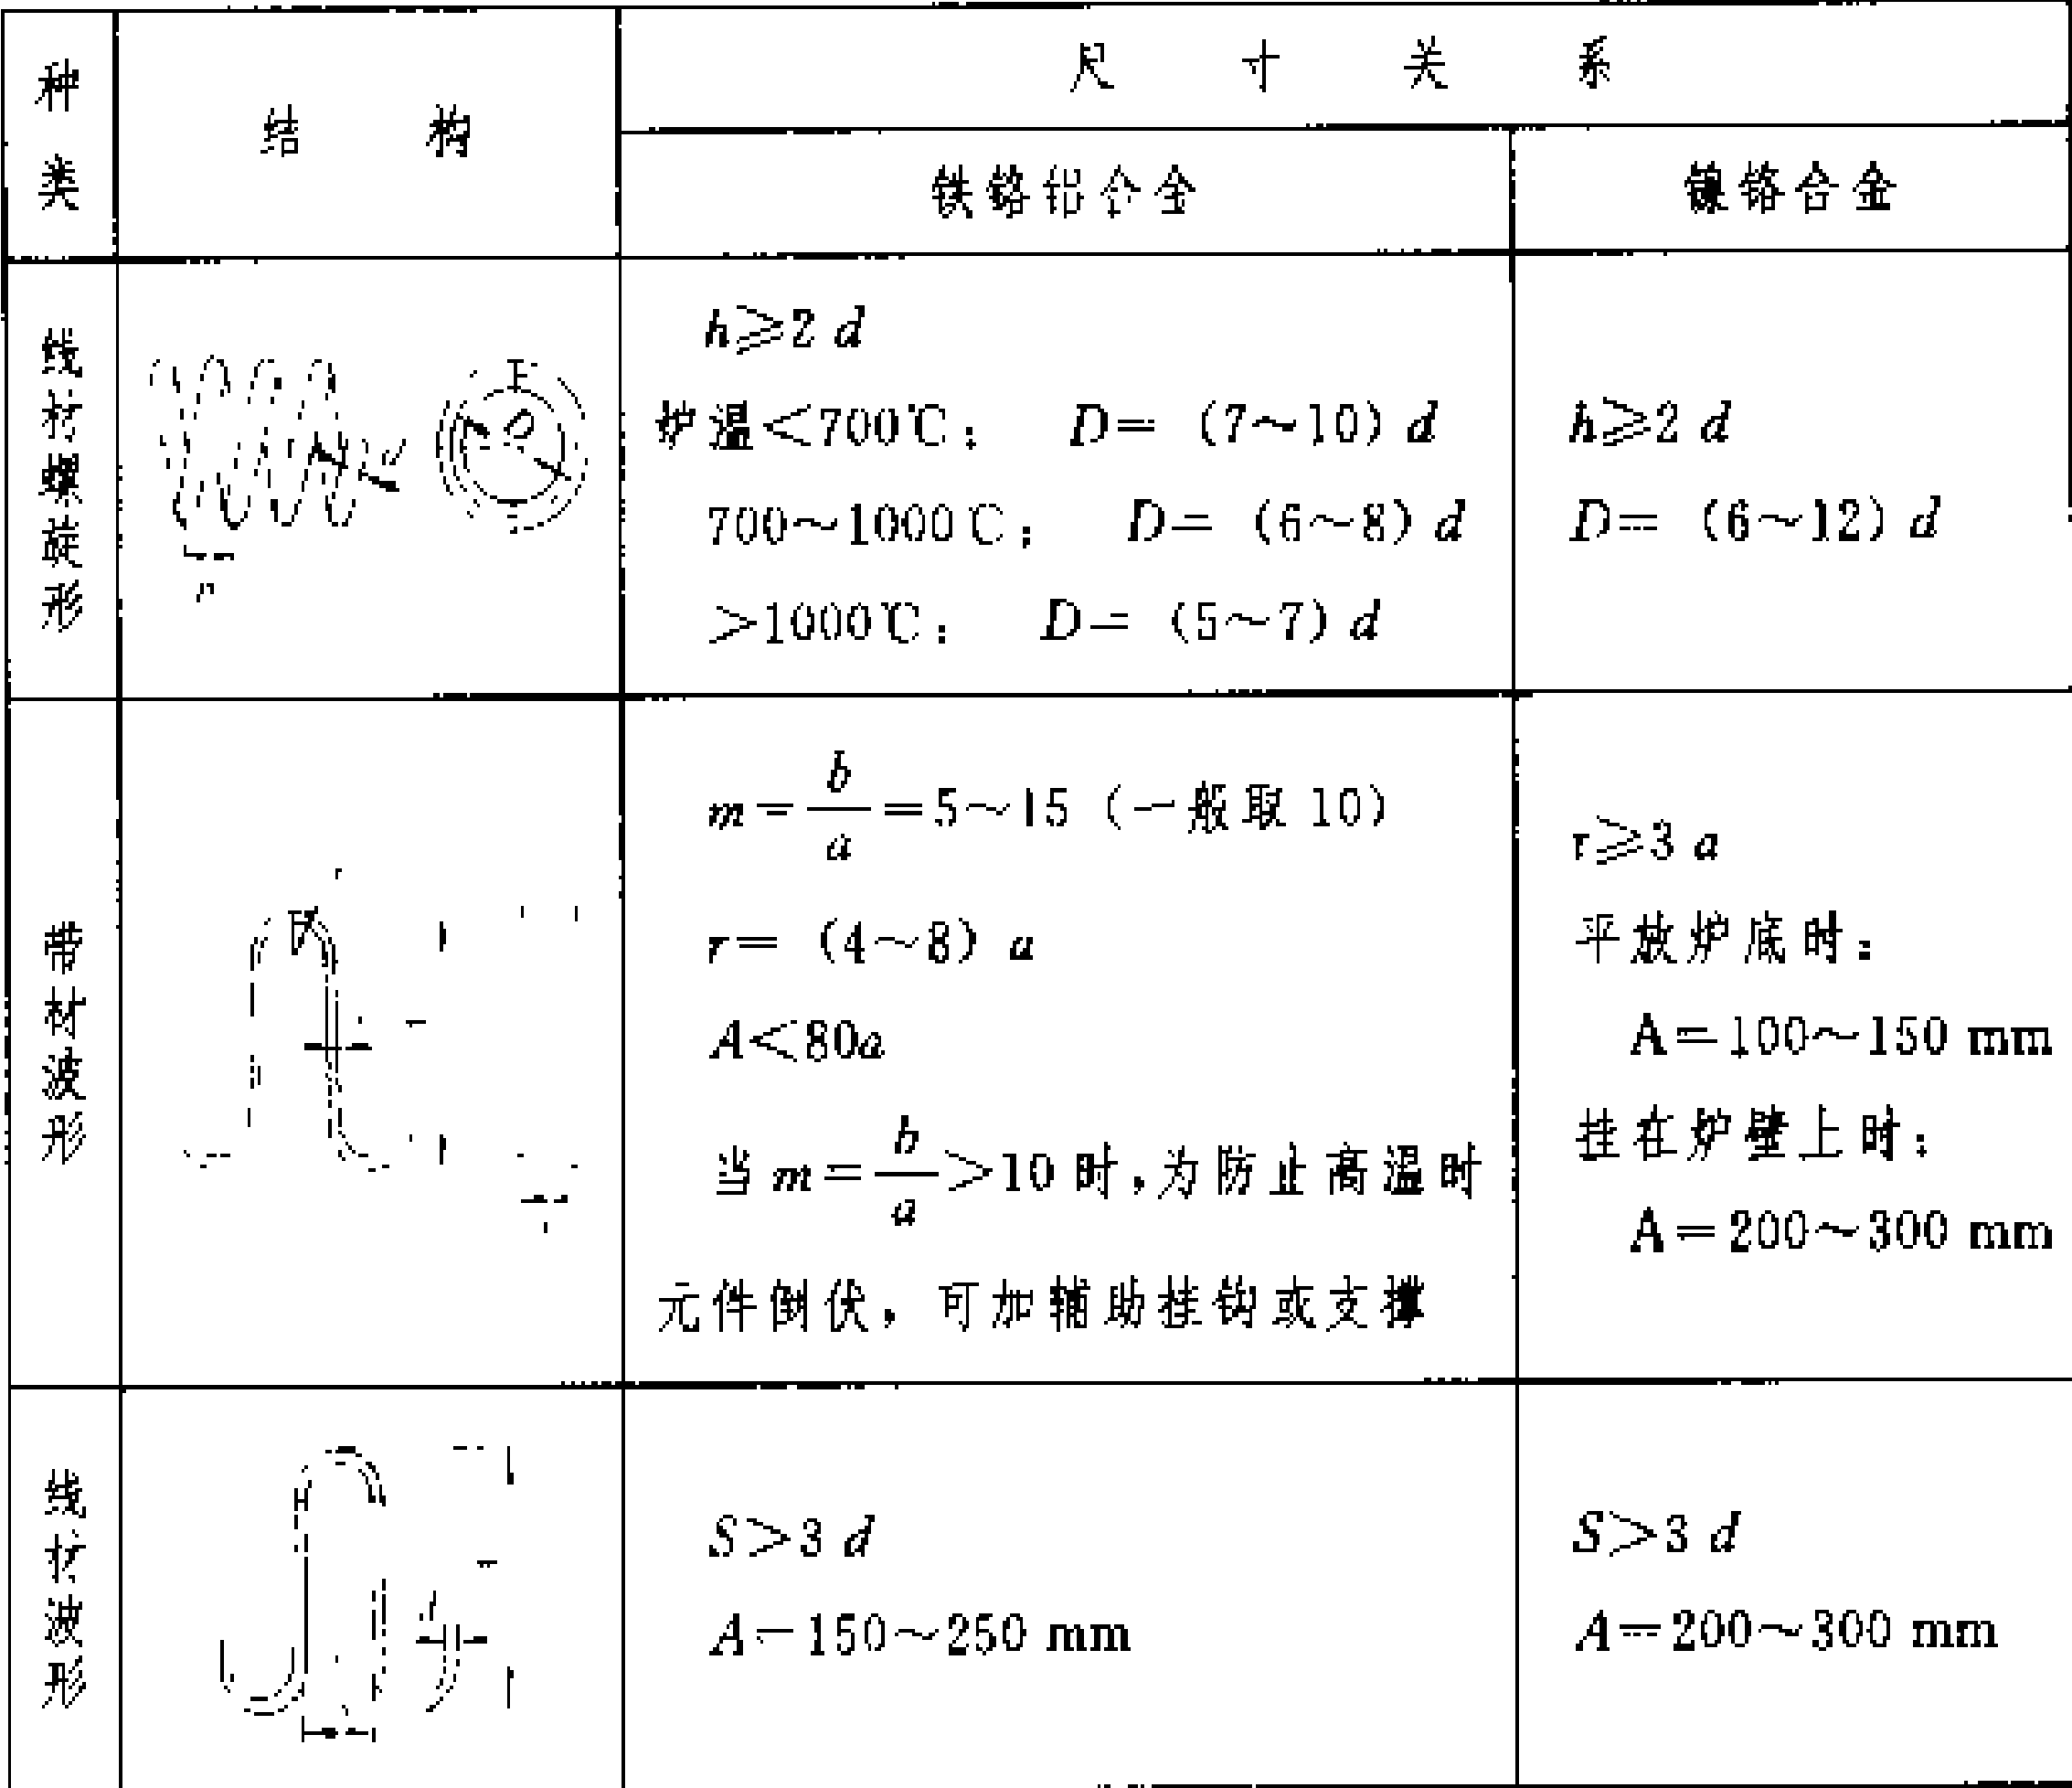 种类
结构
尺寸关系
铁铬铝合金
镍铬合金
线材螺旋形
d
D
h
h≥2d
炉温<700℃； D=（7～10）d
700～1000℃； D=（6～8）d
>1000℃； D=（5～7）d
h≥2d
D=（6～12）d
带材波形
r
m=b/a=5～15（一般取10）
r=（4～8）a
A<80a
当m=b/a>10时，为防止高温时
元件倒伏，可加辅助挂钩或支撑
r≥3a
平放炉底时：
A=100～150 mm
挂在炉壁上时：
A=200～300 mm
线材波形
S>3d
A=150～250 mm
S>3d
A=200～300 mm